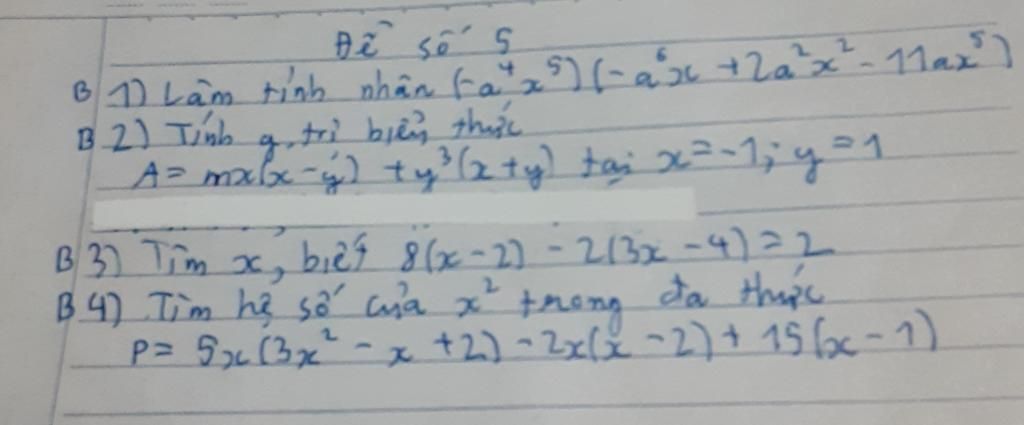 Đề số 5
B 1) Làm tính nhân (-a⁴x⁵)(-a⁶x + 2a²x² - 11ax⁵)
B 2) Tính g.trị biểu thức
A = mx(x - y) + y³(x + y) tại x = -1; y = 1
B 3) Tìm x, biết 8(x - 2) - 2(3x - 4) = 2
B 4) Tìm hệ số của x² trong đa thức
P = 5x(3x² - x + 2) - 2x(x - 2) + 15(x - 1)